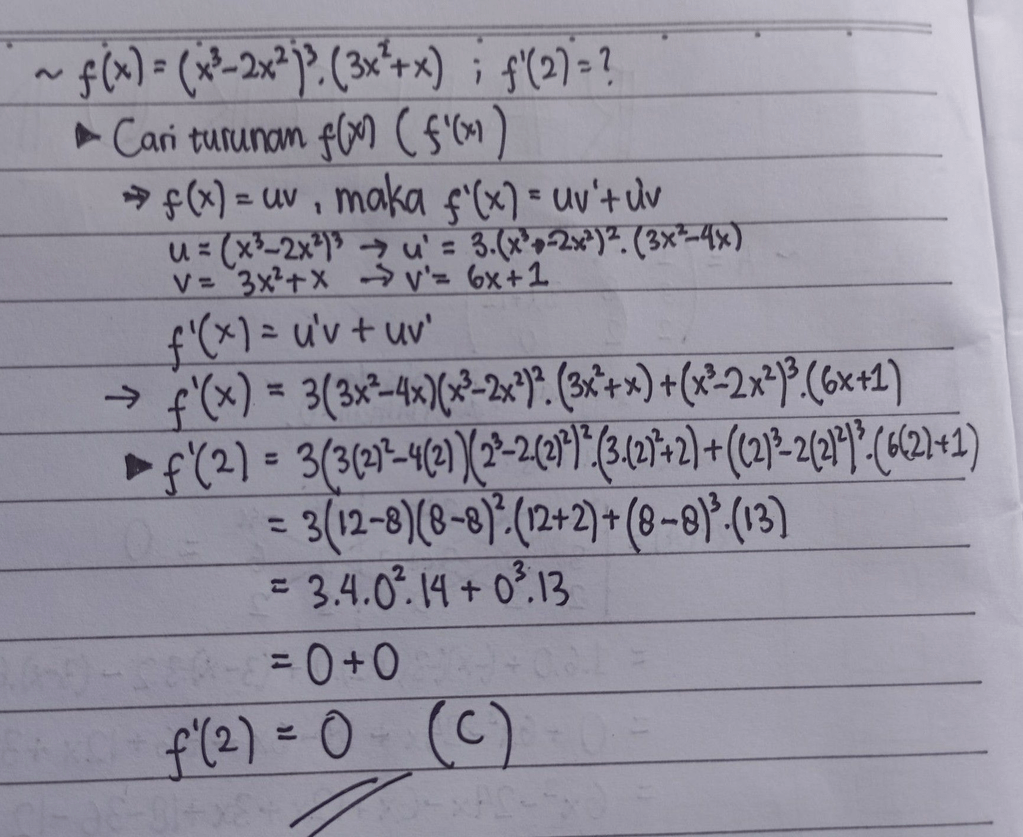 ~ f(x) = (x³-2x²)³.(3x²+x) ; f'(2) = ?
▶ Cari turunan f(x) (f'(x))
⇒ f(x) = uv, maka f'(x) = uv' + u'v
u = (x³-2x²)³ → u' = 3.(x³-2x²)².(3x²-4x)
v = 3x²+x → v' = 6x+1
f'(x) = u'v + uv'
→ f'(x) = 3(3x²-4x)(x³-2x²)².(3x²+x)+(x³-2x²)³.(6x+1)
▶ f'(2) = 3(3(2)²-4(2))(2³-2.(2)²)².(3.(2)²+2)+((2)³-2(2)²)³.(6(2)+1)
= 3(12-8)(8-8)².(12+2)+(8-8)³.(13)
= 3.4.0².14 + 0³.13
= 0+0
f'(2) = 0 (C)